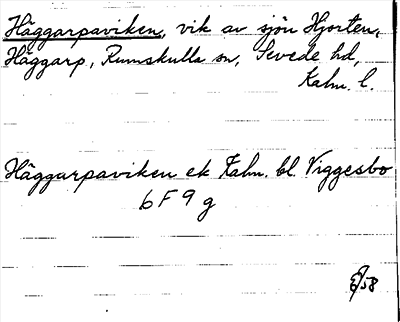 Häggarpaviken, vik av sjön Hjorten,
Häggarp, Rumskulla sn, Sevede hd,
Kalm. l.
Häggarpaviken ek Kalm. bl. Viggesbo
6 F 9 g
/58